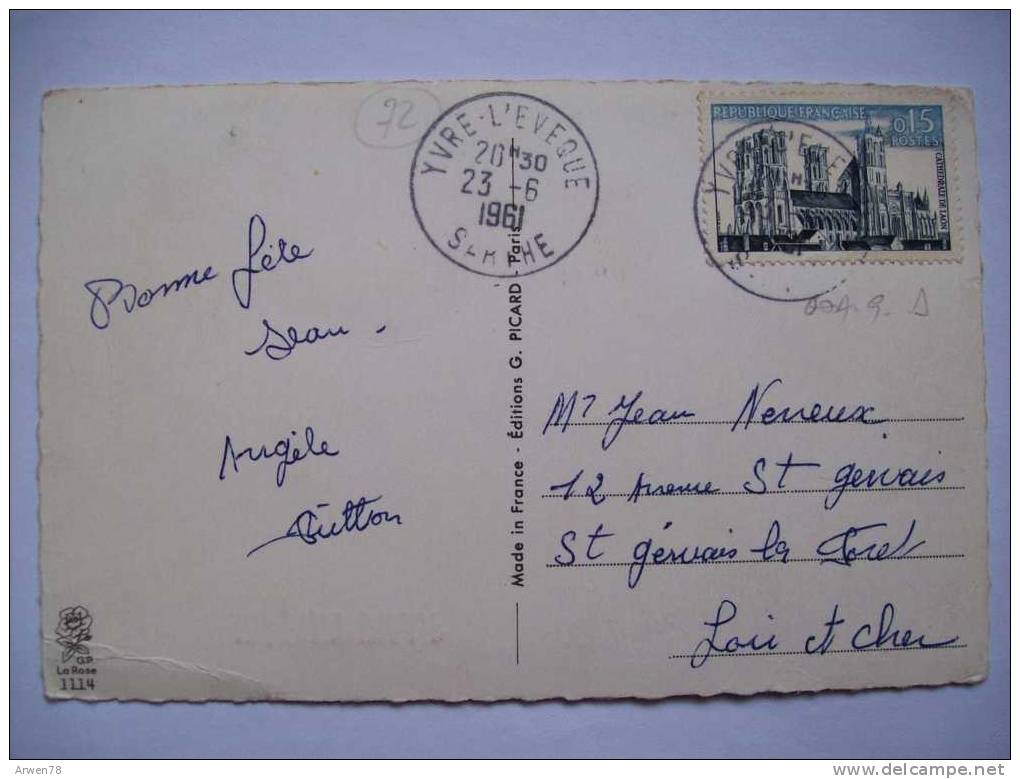 72
YVRE-L'EVEQUE
20H30
23-6
1961
SARTHE
REPUBLIQUE FRANÇAISE
0,15
POSTES
CATHEDRALE DE LAON
Bonne fête
Jean.
Angèle
Made in France - Éditions G. PICARD - Paris
Mr Jean
12 Avenue St gervais
St gervais la Foret
Loir et Cher
G.P
La Rose
1114
Arwen78
http://www.delcampe.net